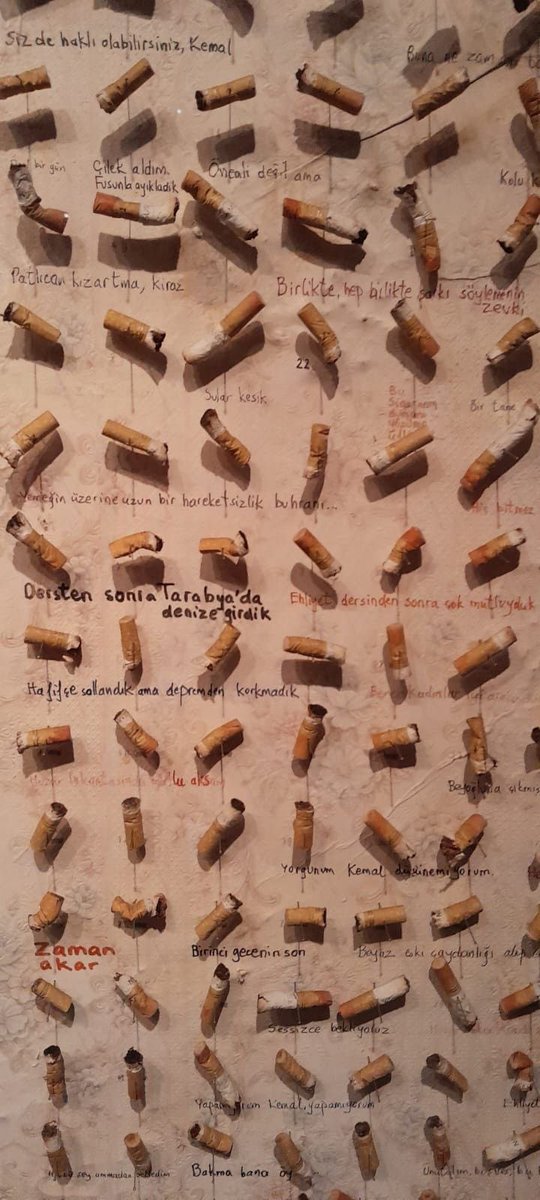 Siz de haklı olabilirsiniz, Kemal
Buna ne zam
bir gün
Çilek aldım.
Füsunla ayıkladık
Önemli değil ama
Patlıcan kızartma, kiraz
Birlikte, hep birlikte şarkı söylemenin
zevki
22
Sular kesik
Bir tane
Yemeğin üzerine uzun bir hareketsizlik buhranı...
Hiç bitmez
Dersten sonra Tarabya'da
denize girdik
Ehliyet dersinden sonra çok mutluyduk
Hafifçe sallandık ama depremden korkmadık
Beyoğluna çıkmış
Yorgunum Kemal düşünemiyorum.
Zaman
akar
Birinci gecenin son
Beyaz eski çaydanlığı alıp
Sessizce bekliyoruz
Yapamıyorum Kemal, yapamıyorum
Bakma bana öy